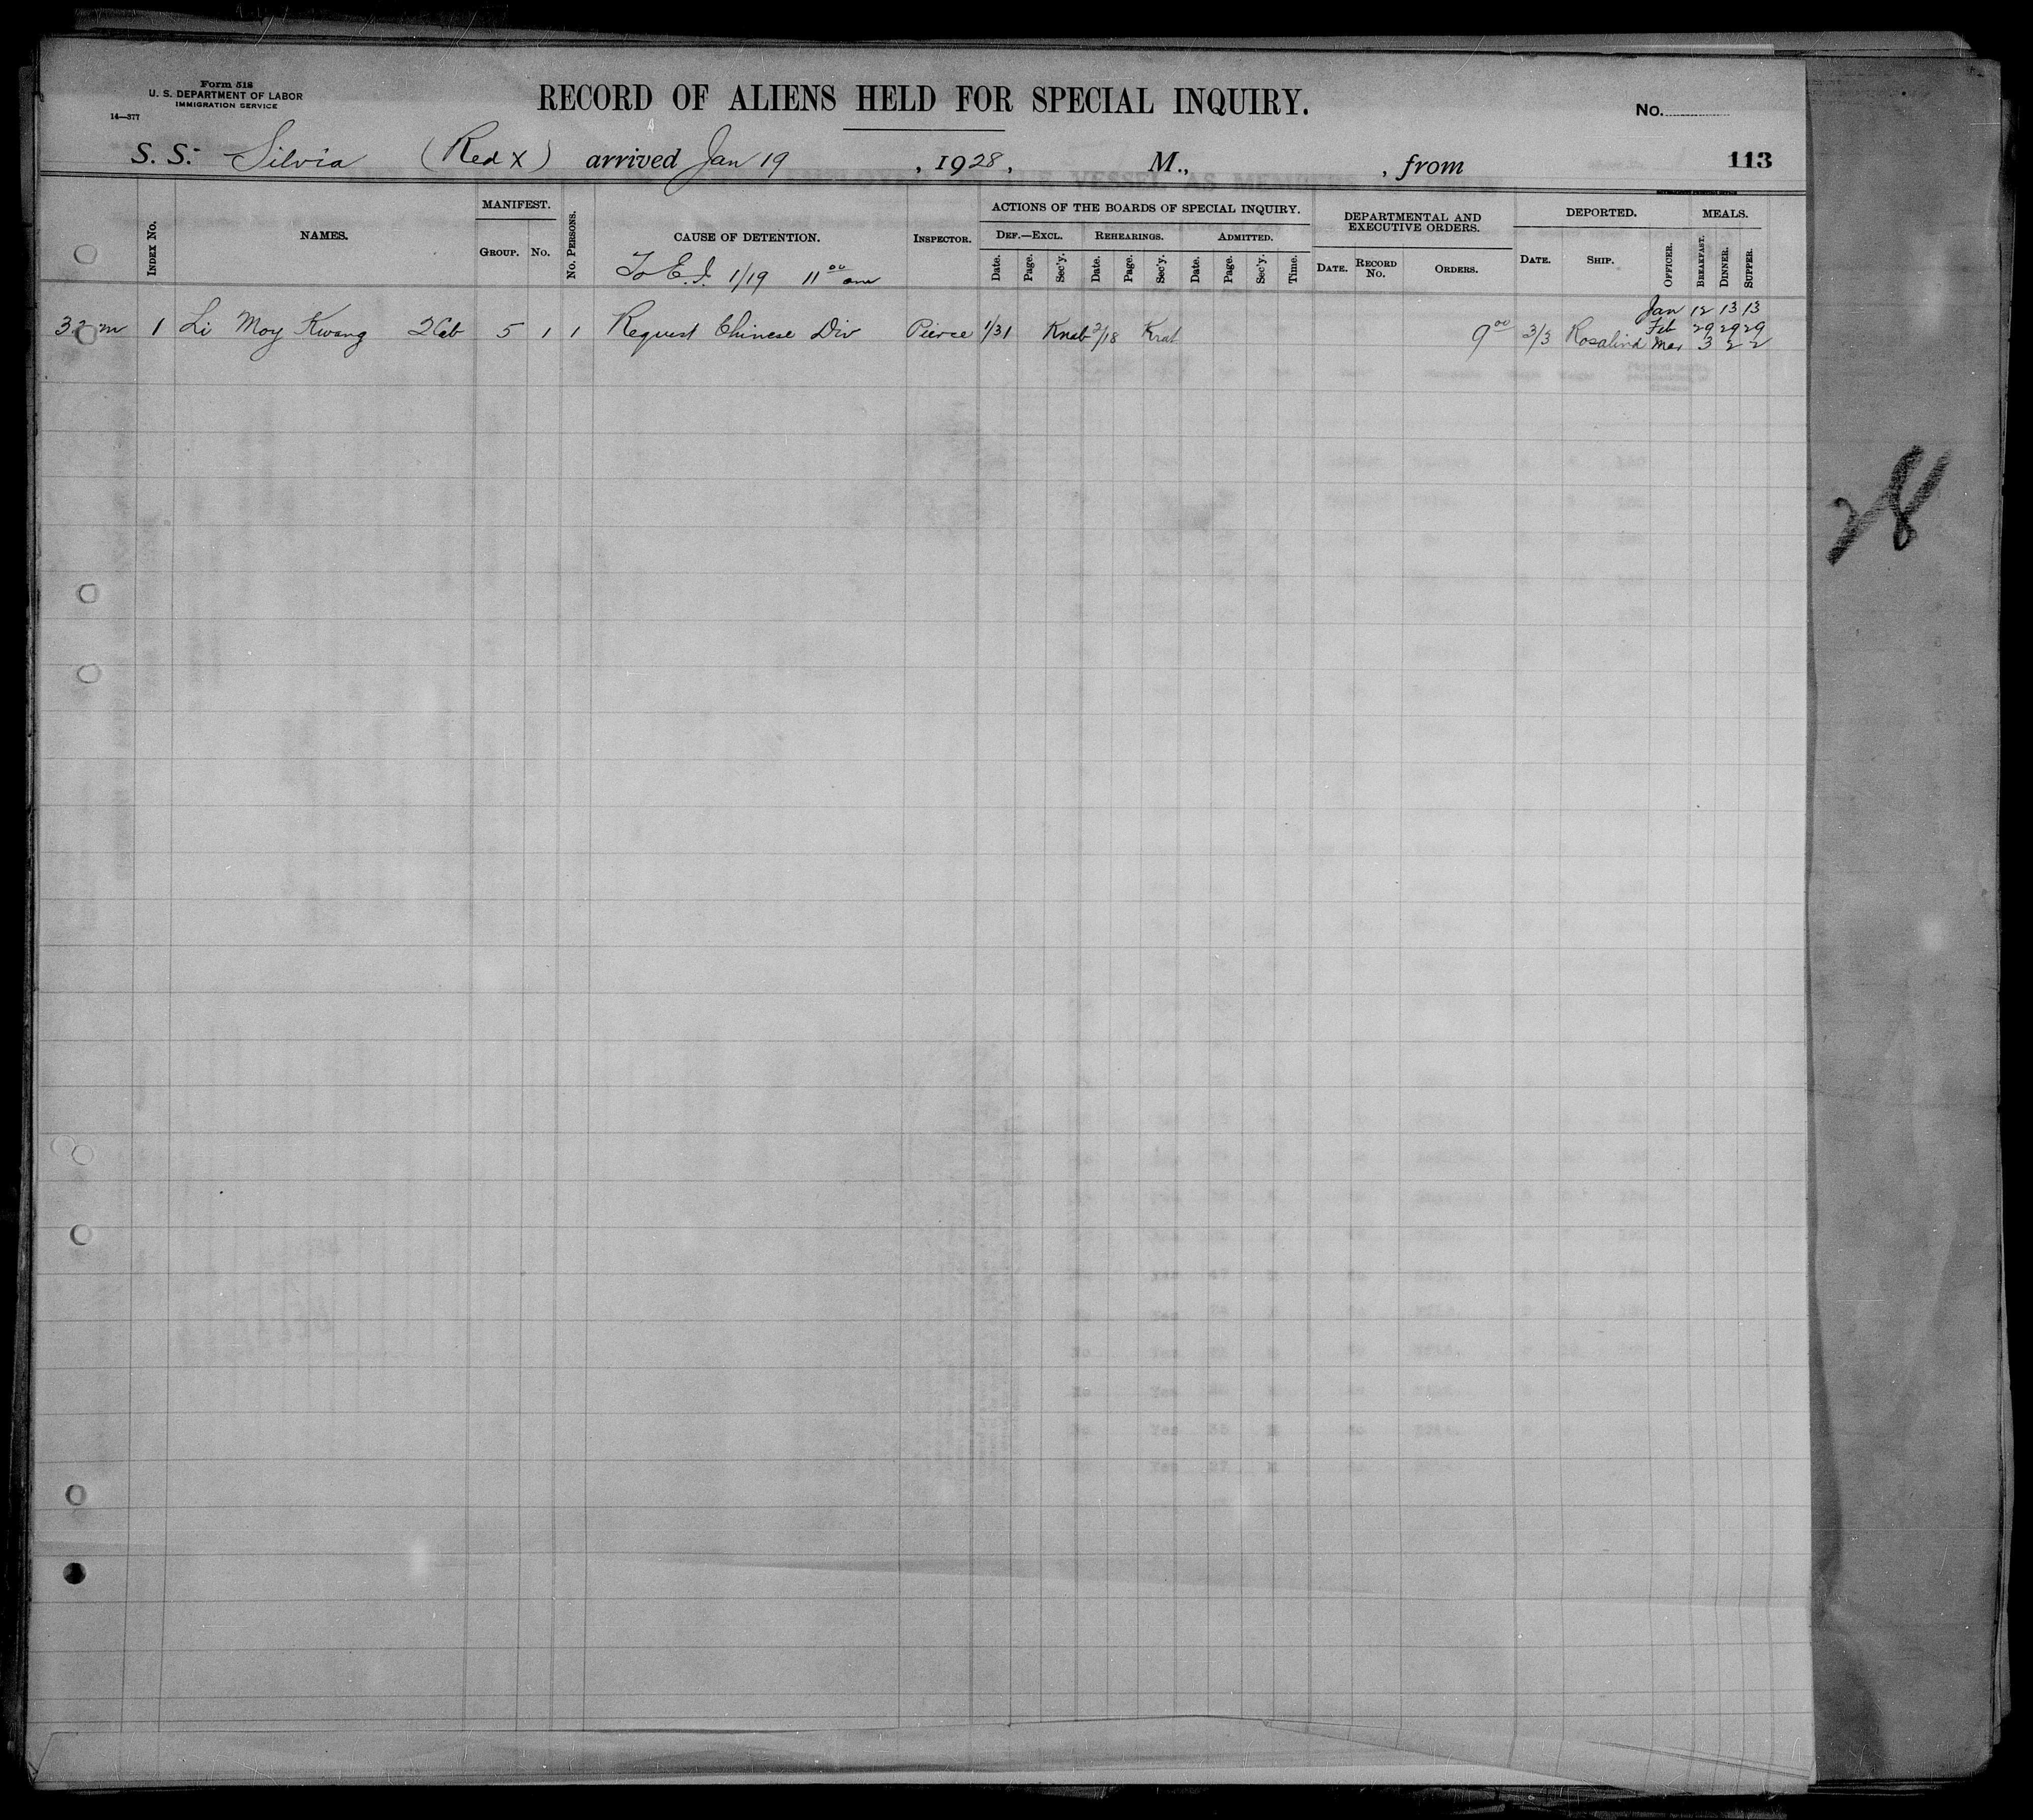 Form 518
U. S. DEPARTMENT OF LABOR
IMMIGRATION SERVICE
14—377
RECORD OF ALIENS HELD FOR SPECIAL INQUIRY.
No.
S. S. Silvia (Red X) arrived Jan 19, 1928, M., , from 113
INDEX No.
NAMES.
MANIFEST.
GROUP. No.
No. PERSONS.
CAUSE OF DETENTION.
To E.I. 1/19 11 00 am
INSPECTOR.
ACTIONS OF THE BOARDS OF SPECIAL INQUIRY.
DEF.—EXCL. REHEARINGS. ADMITTED.
Date. Page. Sec'y. Date. Page. Sec'y. Date. Page. Sec'y. Time.
DEPARTMENTAL AND
EXECUTIVE ORDERS.
DATE. RECORD No. ORDERS.
DEPORTED.
DATE. SHIP. OFFICER.
MEALS.
BREAKFAST. DINNER. SUPPER.
Jan 12 13 13
Feb 29 29 29
32 m 1 Li Moy Kwang 2 Cab 5 1 1 Request Chinese Div Pierce 1/31 Knab 2/18 9 00 3/3 Rosalind Mar 3 2 2
28